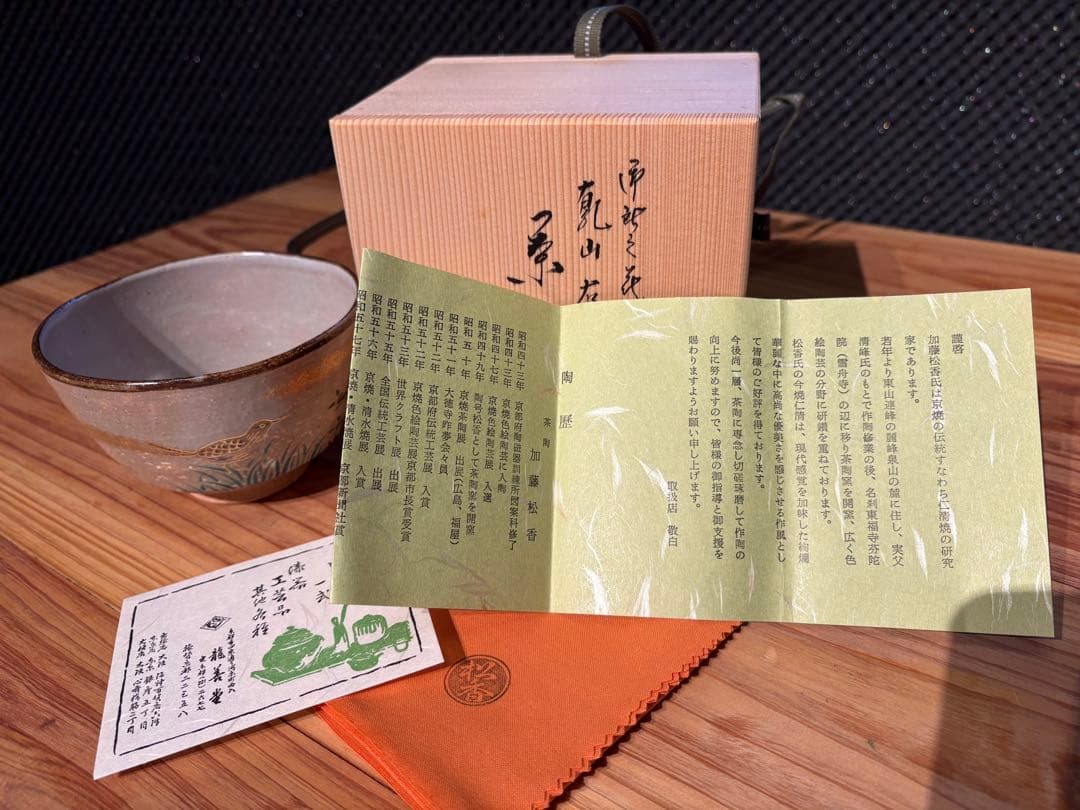 乾山
茶
謹啓
加藤松香氏は京焼の伝統すなわち仁清焼の研究
家であります。
若年より東山連峰の麗峰泉山の麓に住し、実父
清峰氏のもとで作陶修業の後、名刹東福寺芬陀
院（雪舟寺）の辺に移り茶陶窯を開窯、広く色
絵陶芸の分野に研鑽を重ねております。
松香氏の今焼仁清は、現代感覚を加味した絢爛
華麗な中に高尚な優美さを感じさせる作風とし
て皆様のご好評を得ております。
今後尚一層、茶陶に専念し切磋琢磨して作陶の
向上に努めますので、皆様の御指導と御支援を
賜わりますようお願い申し上げます。
取扱店 敬白
陶歴
茶陶 加藤松香
昭和四十三年 京都府陶磁器訓練所図案科修了
昭和四十三年 京焼色絵陶芸に入門
昭和四十七年 京焼色絵陶芸展 入選
昭和四十九年 陶号松香として茶陶窯を開窯
昭和五十年 京焼茶陶展 出展（広島、福屋）
昭和五十一年 大徳寺昨夢会々員
昭和五十二年 京都府伝統工芸展 入賞
昭和五十二年 京焼色絵陶芸展京都市長賞受賞
昭和五十三年 世界クラフト展 出展
昭和五十五年 全国伝統工芸展 出展
昭和五十六年 京焼・清水焼展 入賞
昭和五十七年 京焼・清水焼展 京都新聞社賞
漆器
工芸品
其他各種
龍善堂
松香